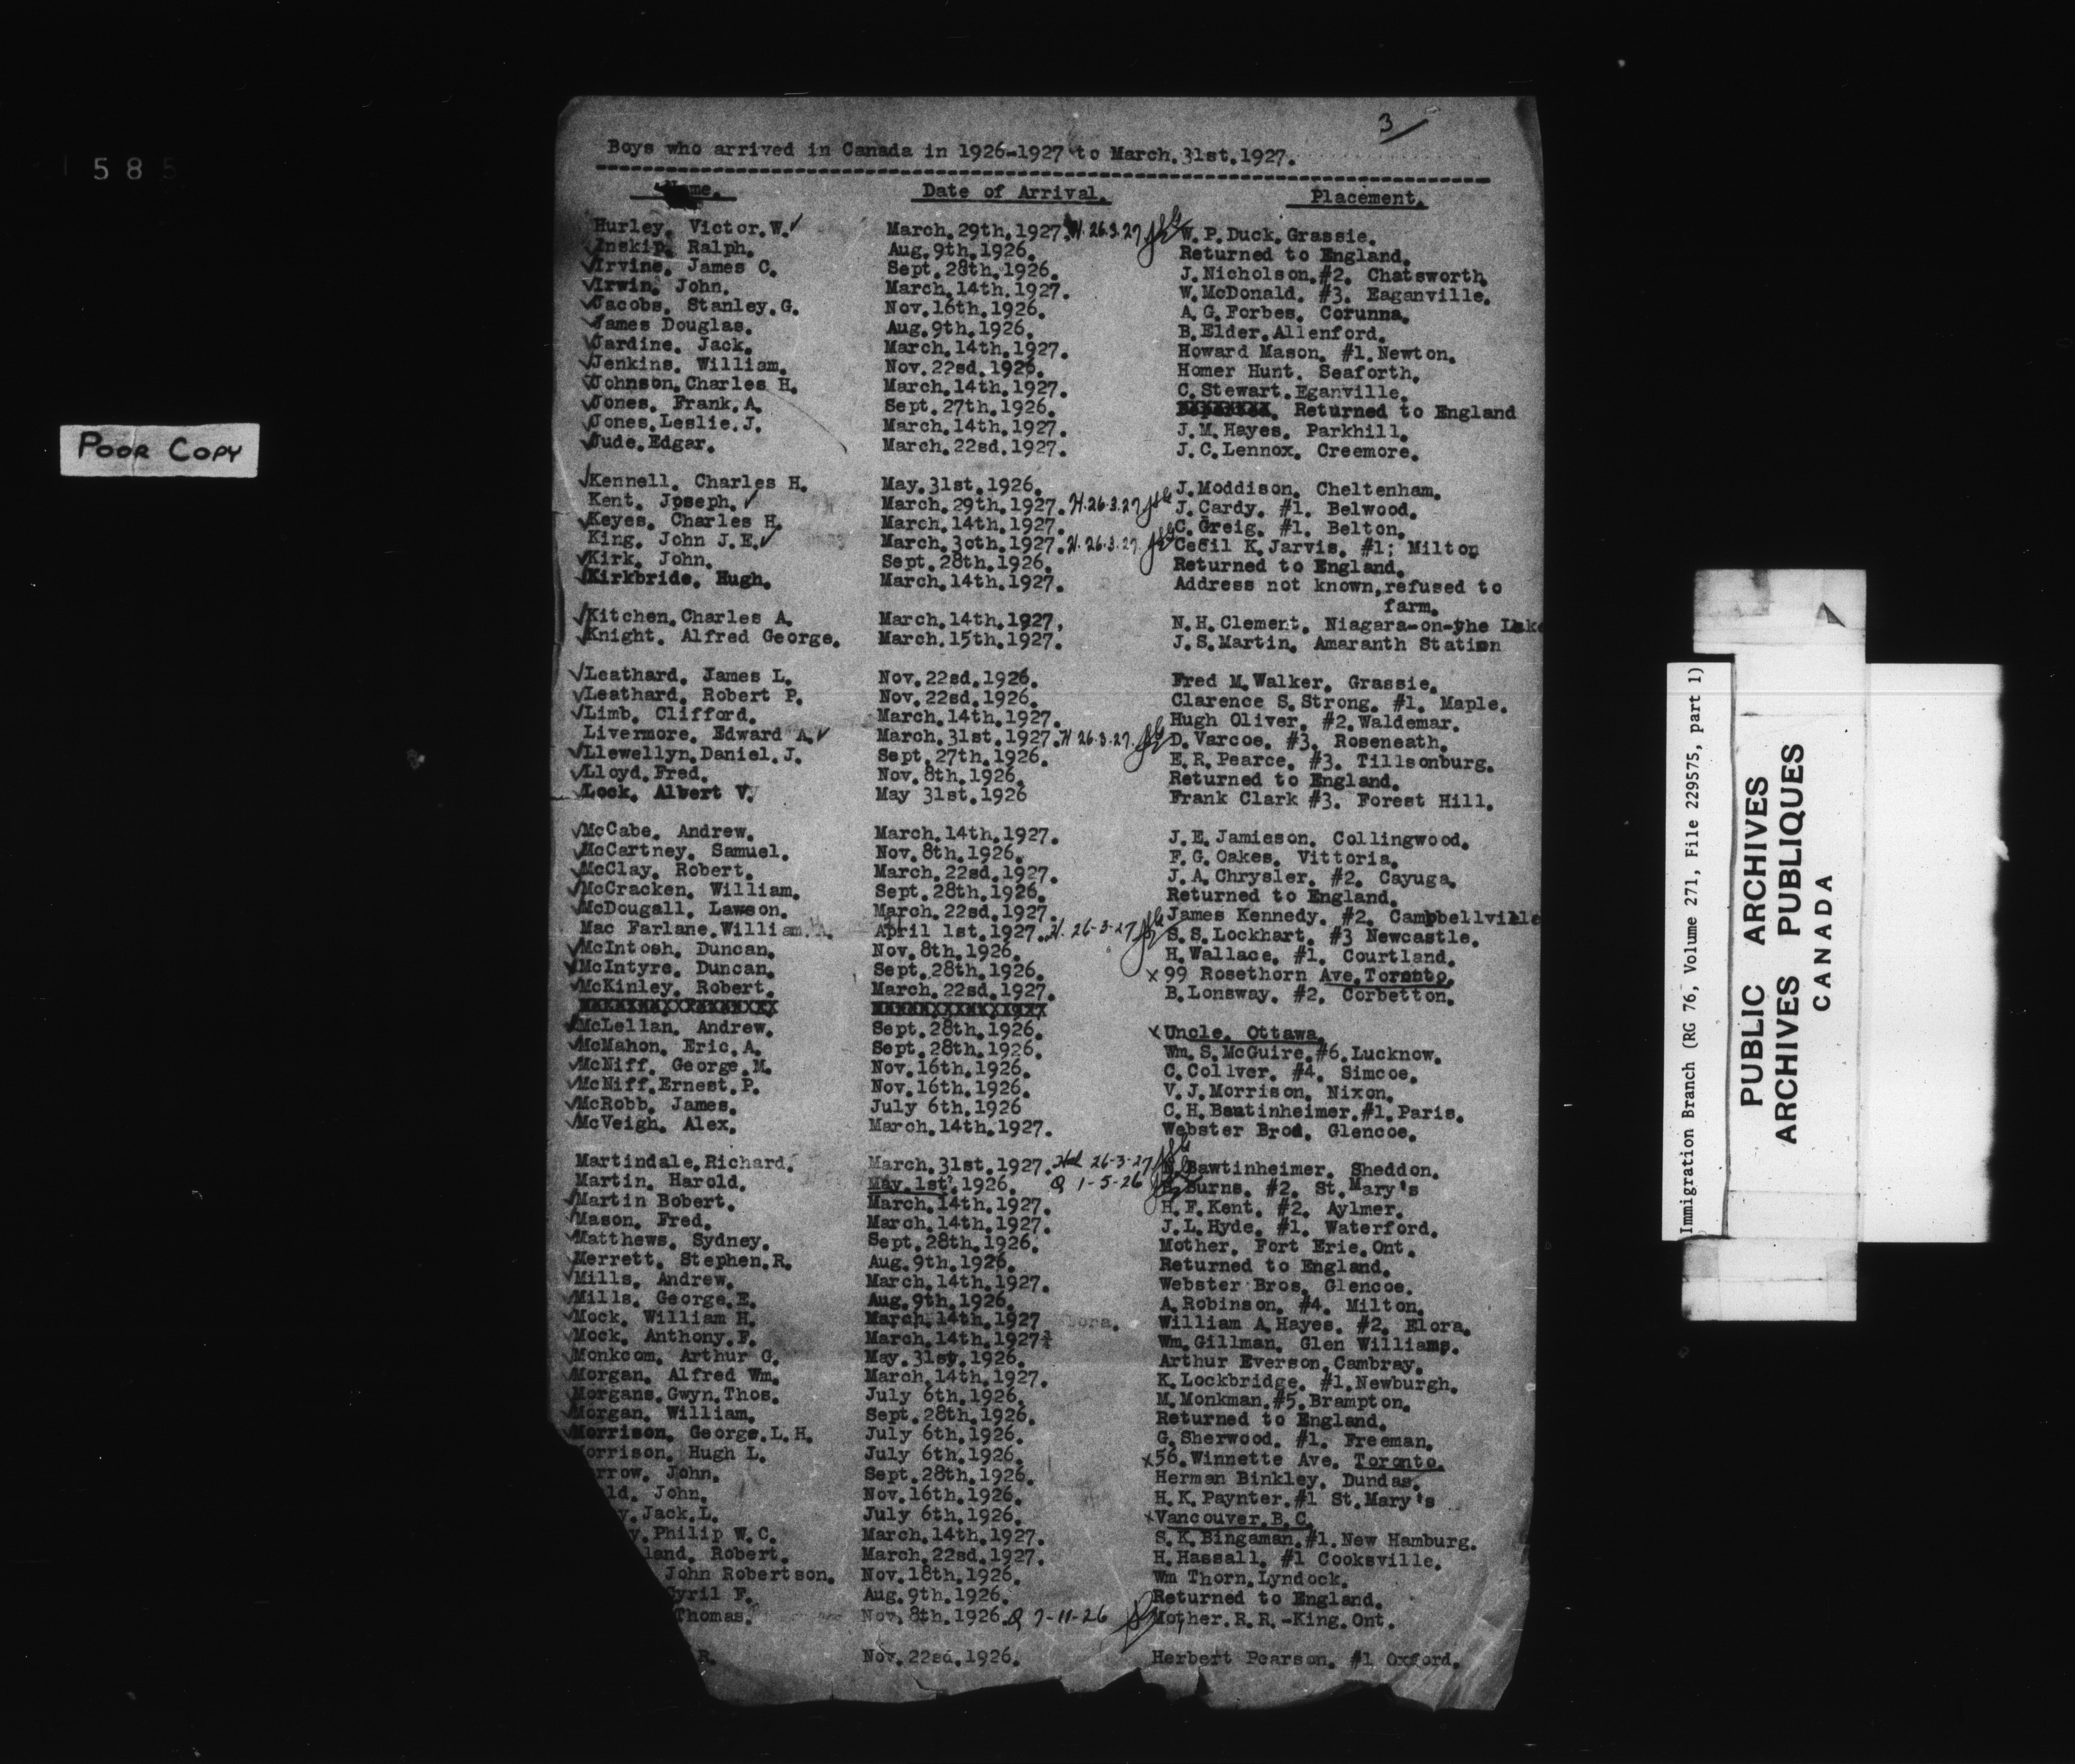 3
Boys who arrived in Canada in 1926-1927 to March.31st.1927.
Date of Arrival. Placement.
Hurley. Victor.W. March.29th.1927. H.26.3.27 W.P.Duck.Grassie.
Inskip. Ralph. Aug.9th.1926. Returned to England.
Irvine. James C. Sept.28th.1926. J.Nicholson.#2. Chatsworth.
Irwin. John. March.14th.1927. W.McDonald. #3. Eaganville.
Jacobs. Stanley.G. Nov.16th.1926. A.G.Forbes. Corunna.
James Douglas. Aug.9th.1926. B.Elder.Allenford.
Jardine. Jack. March.14th.1927. Howard Mason. #1.Newton.
Jenkins. William. Nov.22sd.1926. Homer Hunt. Seaforth.
Johnson.Charles H. March.14th.1927. C.Stewart.Eganville.
Jones. Frank.A. Sept.27th.1926. Returned to England
Jones.Leslie.J. March.14th.1927. J.M.Hayes. Parkhill.
Jude.Edgar. March.22sd.1927. J.C.Lennox. Creemore.
Kennell. Charles H. May.31st.1926. J.Moddison. Cheltenham.
Kent. Jpseph. March.29th.1927. H.26.3.27 J.Cardy. #1. Belwood.
Keyes. Charles H. March.14th.1927. C.Greig. #1. Belton.
King. John J.E. March.30th.1927. H.26.3.27. Cecil K.Jarvis. #1; Milton
Kirk. John. Sept.28th.1926. Returned to England.
Kirkbride. Hugh. March.14th.1927. Address not known,refused to
farm.
Kitchen.Charles A. March.14th.1927, N.H.Clement. Niagara-on-yhe Lake
Knight. Alfred George. March.15th.1927. J.S.Martin. Amaranth Station
Leathard. James L. Nov.22sd.1926. Fred M.Walker. Grassie.
Leathard. Robert P. Nov.22sd.1926. Clarence S.Strong. #1. Maple.
Limb. Clifford. March.14th.1927. Hugh Oliver. #2.Waldemar.
Livermore. Edward A. March.31st.1927. H 26.3.27. D.Varcoe. #3. Roseneath.
Llewellyn.Daniel.J. Sept.27th.1926. E.R.Pearce. #3. Tillsonburg.
Lloyd.Fred. Nov.8th.1926. Returned to England.
Lock. Albert V. May 31st.1926 Frank Clark #3. Forest Hill.
McCabe. Andrew. March.14th.1927. J.E.Jamieson. Collingwood.
McCartney. Samuel. Nov.8th.1926. F.G.Oakes. Vittoria.
McClay. Robert. March.22sd.1927. J.A.Chrysler. #2. Cayuga.
McCracken. William. Sept.28th.1926. Returned to England.
McDougall. Lawson. March.22sd.1927. James Kennedy. #2. Campbellville
Mac Farlane.William.A. April 1st.1927. H. 26-3-27 S.S.Lockhart. #3 Newcastle.
McIntosh. Duncan. Nov.8th.1926. H.Wallace. #1. Courtland.
McIntyre. Duncan. Sept.28th.1926. x 99 Rosethorn Ave.Toronto.
McKinley. Robert. March.22sd.1927. B.Lonsway. #2. Corbetton.
McLellan. Andrew. Sept.28th.1926. x Uncle. Ottawa.
McMahon. Eric.A. Sept.28th.1926. Wm.S.McGuire.#6.Lucknow.
McNiff. George.M. Nov.16th.1926. C.Collver. #4. Simcoe.
McNiff.Ernest.P. Nov.16th.1926. V.J.Morrison. Nixon.
McRobb. James. July 6th.1926 C.H.Bautinheimer.#1.Paris.
McVeigh. Alex. March.14th.1927. Webster Brod. Glencoe.
Martindale.Richard. March.31st.1927. 26-3-27 Bawtinheimer. Sheddon.
Martin. Harold. May.1st.1926. Q 1-5-26 Burns. #2. St.Mary's
Martin Bobert. March.14th.1927. H.F.Kent. #2. Aylmer.
Mason. Fred. March.14th.1927. J.L.Hyde. #1. Waterford.
Matthews. Sydney. Sept.28th.1926. Mother. Fort Erie.Ont.
Merrett. Stephen.R. Aug.9th.1926. Returned to England.
Mills. Andrew. March.14th.1927. Webster Bros. Glencoe.
Mills. George.E. Aug.9th.1926. A.Robinson. #4. Milton.
Mock. William H. March.14th.1927 William A.Hayes. #2. Elora.
Mock. Anthony.F. March.14th.1927 Wm.Gillman. Glen Williams.
Monkcom. Arthur G. May.31st.1926. Arthur Everson.Cambray.
Morgan. Alfred Wm. March.14th.1927. K.Lockbridge. #1.Newburgh.
Morgans.Gwyn.Thos. July 6th.1926. M.Monkman.#5.Brampton.
Morgan. William. Sept.28th.1926. Returned to England.
Morrison. George.L.H. July 6th.1926. G.Sherwood. #1. Freeman.
orrison. Hugh L. July 6th.1926. x56.Winnette Ave. Toronto.
rrow. John. Sept.28th.1926. Herman Binkley. Dundas.
ld. John. Nov.16th.1926. H.K.Paynter.#1 St.Mary's
y.Jack.L. July 6th.1926. xVancouver.B.C.
y.Philip W.C. March.14th.1927. S.K.Bingaman.#1.New Hamburg.
land. Robert. March.22sd.1927. H.Hassall. #1 Cooksville.
John Robertson. Nov.18th.1926. Wm Thorn.Lyndock.
Cyril F. Aug.9th.1926. Returned to England.
Thomas. Nov.8th.1926. Q 7-11-26 Mother.R.R.-King.Ont.
R. Nov.22sd.1926. Herbert Pearson. #1 Oxford.
585
POOR COPY
Immigration Branch (RG 76, Volume 271, File 229575, part 1)
PUBLIC ARCHIVES
ARCHIVES PUBLIQUES
CANADA